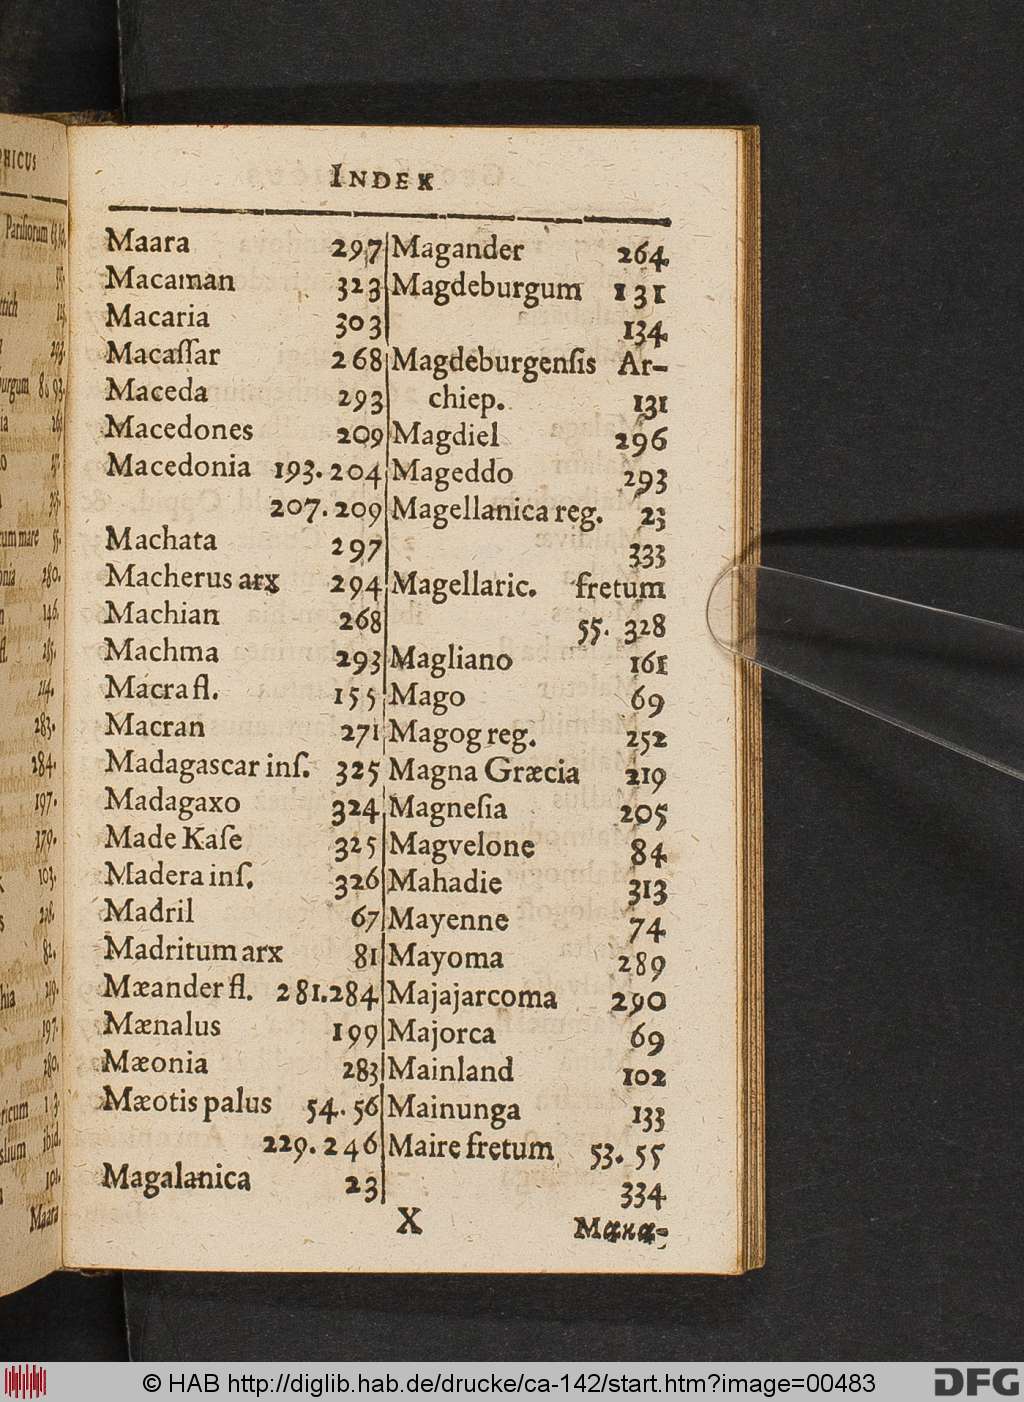 PHICUS
Parisiorum
mare
Maara
INDEX
Maara 297
Macaman 323
Macaria 303
Macaſſar 268
Maceda 293
Macedones 209
Macedonia 193. 204
207. 209
Machata 297
Macherus arx 294
Machian 268
Machma 293
Macra fl. 155
Macran 271
Madagascar inſ. 325
Madagaxo 324
Made Kaſe 325
Madera inſ. 326
Madril 67
Madritum arx 81
Mæander fl. 281.284
Mænalus 199
Mæonia 283
Mæotis palus 54. 56
229. 246
Magalanica 23
Magander 264
Magdeburgum 131
134
Magdeburgenſis Ar-
chiep. 131
Magdiel 296
Mageddo 293
Magellanica reg. 23
333
Magellaric. fretum
55. 328
Magliano 161
Mago 69
Magog reg. 252
Magna Græcia 219
Magneſia 205
Magvelone 84
Mahadie 313
Mayenne 74
Mayoma 289
Majajarcoma 290
Majorca 69
Mainland 102
Mainunga 133
Maire fretum 53. 55
334
X
© HAB http://diglib.hab.de/drucke/ca-142/start.htm?image=00483
DFG